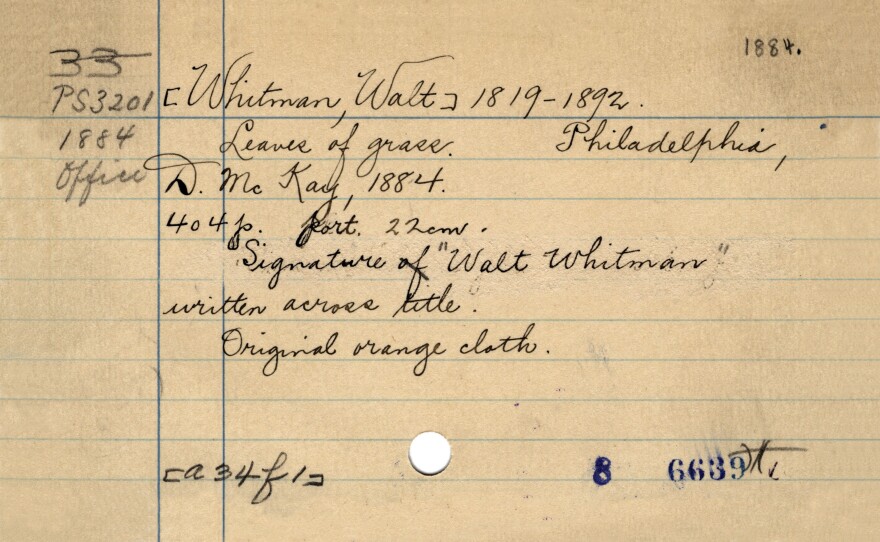 1884.
33
PS3201 [Whitman, Walt] 1819-1892.
1884 Leaves of grass. Philadelphia,
Office D. McKay, 1884.
404p. port. 22cm.
Signature of "Walt Whitman"
written across title.
Original orange cloth.
[a34f1] 8 6639